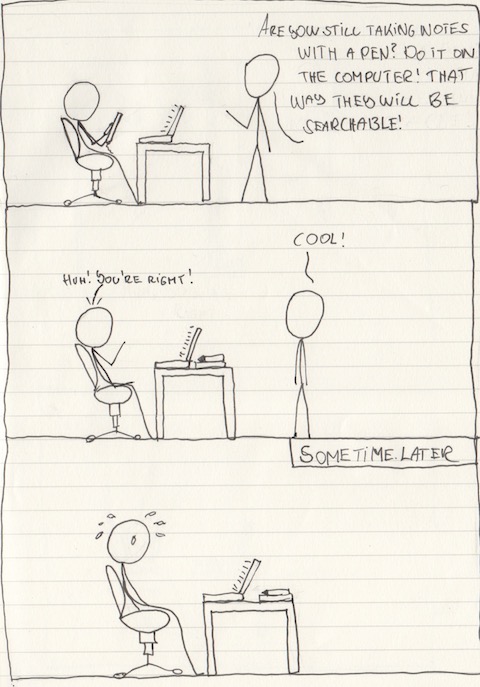 ARE YOU STILL TAKING NOTES
WITH A PEN? DO IT ON
THE COMPUTER! THAT
WAY THEY WILL BE
SEARCHABLE!
COOL!
HUH! YOU'RE RIGHT!
SOMETIME LATER